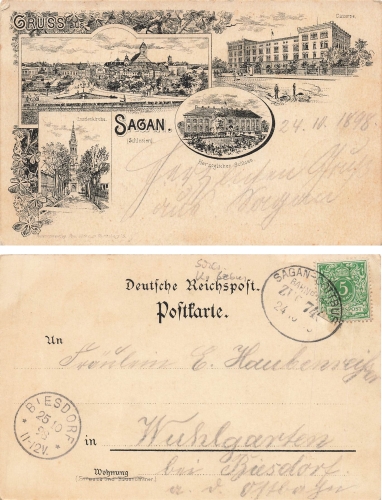 GRUSS AUS
Caserne.
Lutherkirche.
SAGAN.
(Schlesien).
Herzogliches Schloss.
24. 10. 1898.
Herzlichen Gruß
aus Sagan
Deutsche Reichspost.
Postkarte.
SAGAN
24 10
5
An
Fräulein E.
BIESDORF
25 10
98
11-12V.
in
Wuhlgarten
bei Biesdorf
a. d. Ostbahn
Wohnung